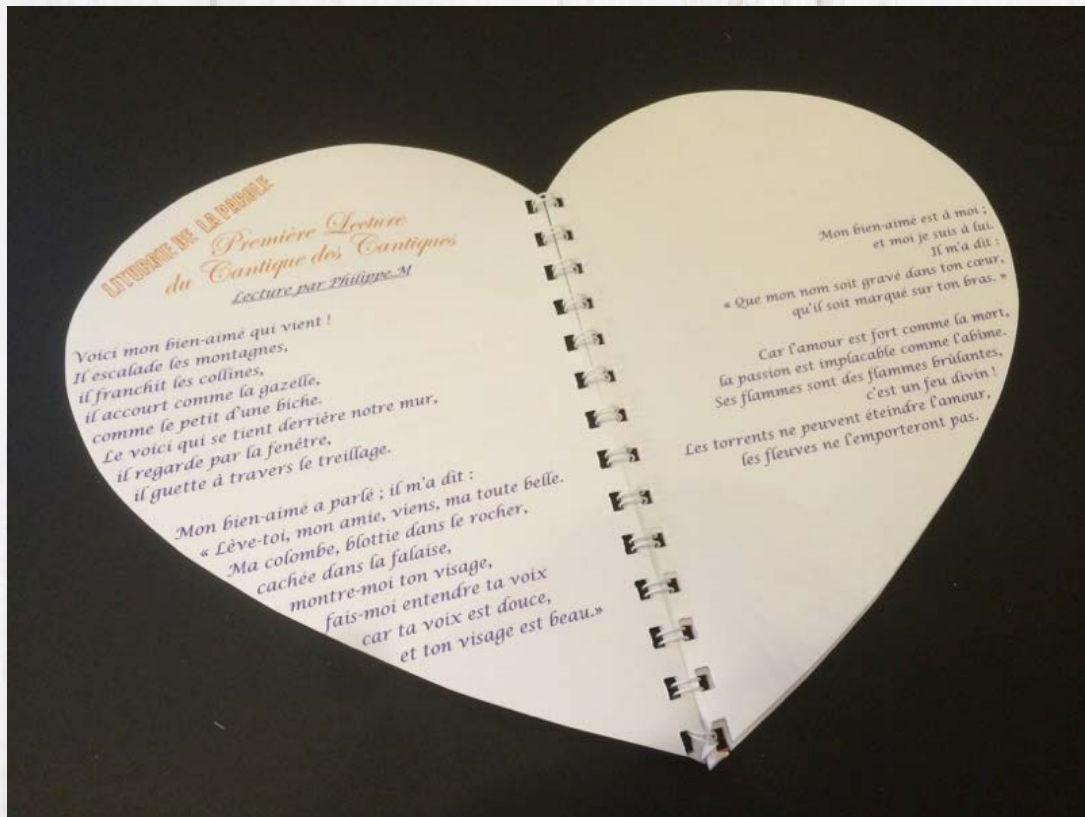 LITURGIE DE LA PAROLE
Première Lecture
du Cantique des Cantiques
Lecture par Philippe.M
Voici mon bien-aimé qui vient !
Il escalade les montagnes,
il franchit les collines,
il accourt comme la gazelle,
comme le petit d'une biche.
Le voici qui se tient derrière notre mur,
il regarde par la fenêtre,
il guette à travers le treillage.
Mon bien-aimé a parlé ; il m'a dit :
« Lève-toi, mon amie, viens, ma toute belle.
Ma colombe, blottie dans le rocher,
cachée dans la falaise,
montre-moi ton visage,
fais-moi entendre ta voix
car ta voix est douce,
et ton visage est beau.»
Mon bien-aimé est à moi ;
et moi je suis à lui.
Il m'a dit :
« Que mon nom soit gravé dans ton cœur,
qu'il soit marqué sur ton bras. »
Car l'amour est fort comme la mort,
la passion est implacable comme l'abîme.
Ses flammes sont des flammes brûlantes,
c'est un feu divin !
Les torrents ne peuvent éteindre l'amour,
les fleuves ne l'emporteront pas.